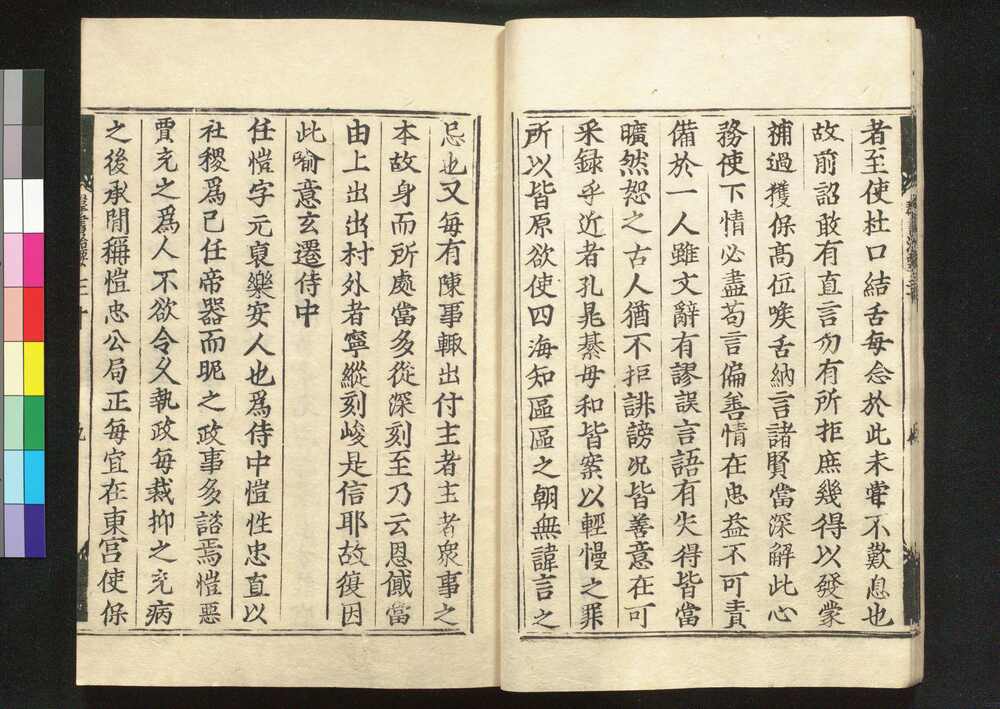 者至使杜口結舌每念於此未甞不歎息也
故前詔敢有直言勿有所拒庶幾得以發蒙
補過獲保高位喉舌納言諸賢當深解此心
務使下情必盡苟言偏善情在忠益不可責
備於一人雖文辭有謬誤言語有失得皆當
曠然恕之古人猶不拒誹謗況皆善意在可
采録乎近者孔晁綦毋和皆案以輕慢之罪
所以皆原欲使四海知區區之朝無諱言之
忌也又每有陳事輙出付主者主者衆事之
本故身而所處當多從深刻至乃云恩俄當
由上出出村外者寧縱刻峻是信耶故復因
此喻意玄遷侍中
任愷字元裒樂安人也爲侍中愷性忠直以
社稷爲己任帝器而昵之政事多諮焉愷惡
賈充之爲人不欲令久執政每裁抑之充病
之後承間稱愷忠公局正每宜在東宮使保